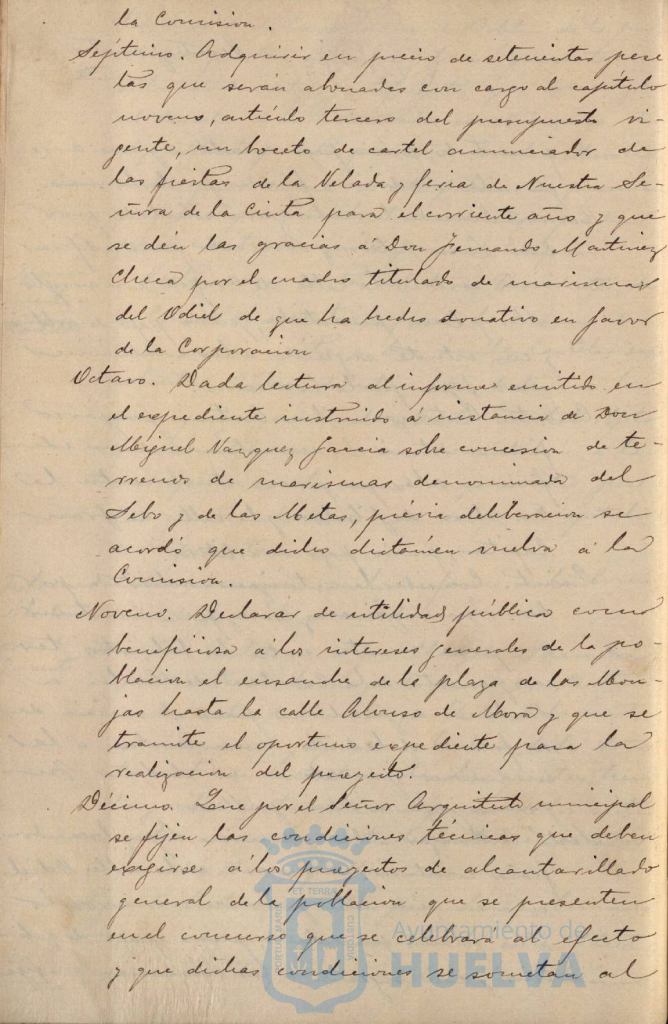 la Comision.
Séptimo. Adquirir en precio de setecientas pese
tas que serán abonadas con cargo al capítulo
noveno, artículo tercero del presupuesto vi-
gente, un boceto de cartel anunciador de
las fiestas de la Velada y feria de Nuestra Se-
ñora de la Cinta para el corriente año y que
se dén las gracias á Don Fernando Martinez
Checa por el cuadro titulado de marismas
del Odiel de que ha hecho donativo en favor
de la Corporacion
Octavo. Dada lectura al informe emitido en
el expediente instruido á instancia de Don
Miguel Vazquez Garcia sobre concesion de te-
rrenos de marismas denominada del
Sebo y de las Metas, prévia deliberacion se
acordó que dicho dictámen vuelva á la
Comision.
Noveno. Declarar de utilidad pública como
beneficiosa á los intereses generales de la po-
blacion el ensanche de la plaza de las Mon-
jas hasta la calle Alonso de Mora y que se
tramite el oportuno expediente para la
realizacion del proyecto.
Décimo. Que por el Señor Arquitecto municipal
se fijen las condiciones técnicas que deben
exigirse á los proyectos de alcantarillado
general de la poblacion que se presenten
en el concurso que se celebrará al efecto
y que dichas condiciones se sometan al
Ayuntamiento de
HUELVA